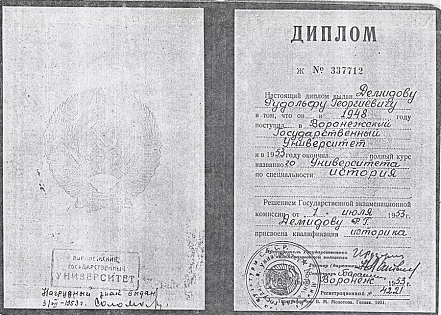 ВОРОНЕЖСКИЙ
ГОСУДАРСТВЕННЫЙ
УНИВЕРСИТЕТ
Нагрудный знак выдан
ДИПЛОМ
Ж № 337712
Настоящий диплом выдан Демидову
Рудольфу Георгиевичу
в том, что он в 1948 году
поступил в Воронежский
Государственный
Университет
и в 1953 году окончил полный курс
названного Университета
по специальности история
Решением Государственной экзаменационной
комиссии от 1 июля 1953 г.
Демидову Р.Г.
присвоена квалификация историка
Воронеж 1953 г.
4221